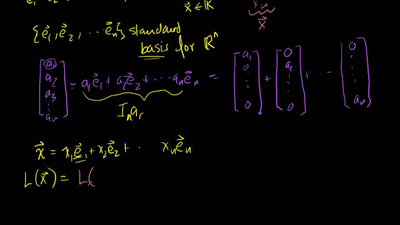 x⃗ ∈ ℝ
x⃗
{e⃗₁, e⃗₂, ⋯ e⃗ₙ} standard
basis for ℝⁿ
[a₁ a₂ a₃ ⋮ aₙ] = a₁e⃗₁ + a₂e⃗₂ + ⋯ aₙe⃗ₙ = [a₁ 0 ⋮ 0] + [0 a₂ ⋮ 0] + ⋯ [0 ⋮ aₙ]
x⃗ = x₁e⃗₁ + x₂e⃗₂ + ⋯ xₙe⃗ₙ
L(x⃗) = L(